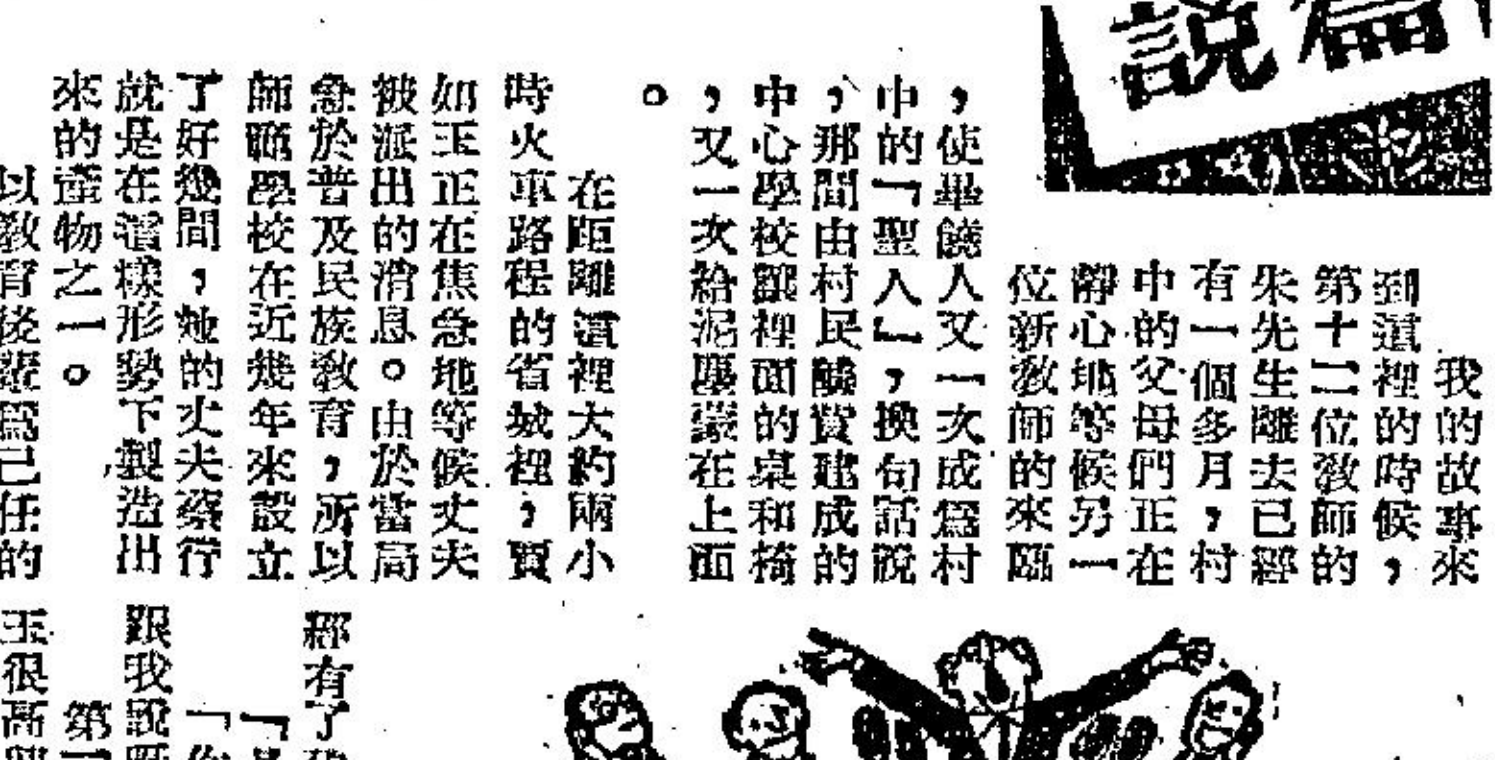 篇
說
我的故事來
到這裡的時候,
第十二位教師的
朱先生離去已經
有一個多月,村
中的父母們正在
靜心地等候另一
位新教師的來臨
,使畢饒人又一次成爲村
中的「聖人」,換句話說
,那間由村民醵資建成的
中心學校讓裡面的桌和椅
,又一次給泥塵蒙在上面
。
在距離這裡大約兩小
時火車路程的省城裡,賈
如玉正在焦急地等候丈夫
被派出的消息。由於當局
急於普及民族敎育,所以
師範學校在近幾年來設立
了好幾間,她的丈夫蔡行
就是在這樣形勢下製造出
來的產物之一。
以敎育後輩爲己任的
有了
「
「你
跟我說
第一
玉很高